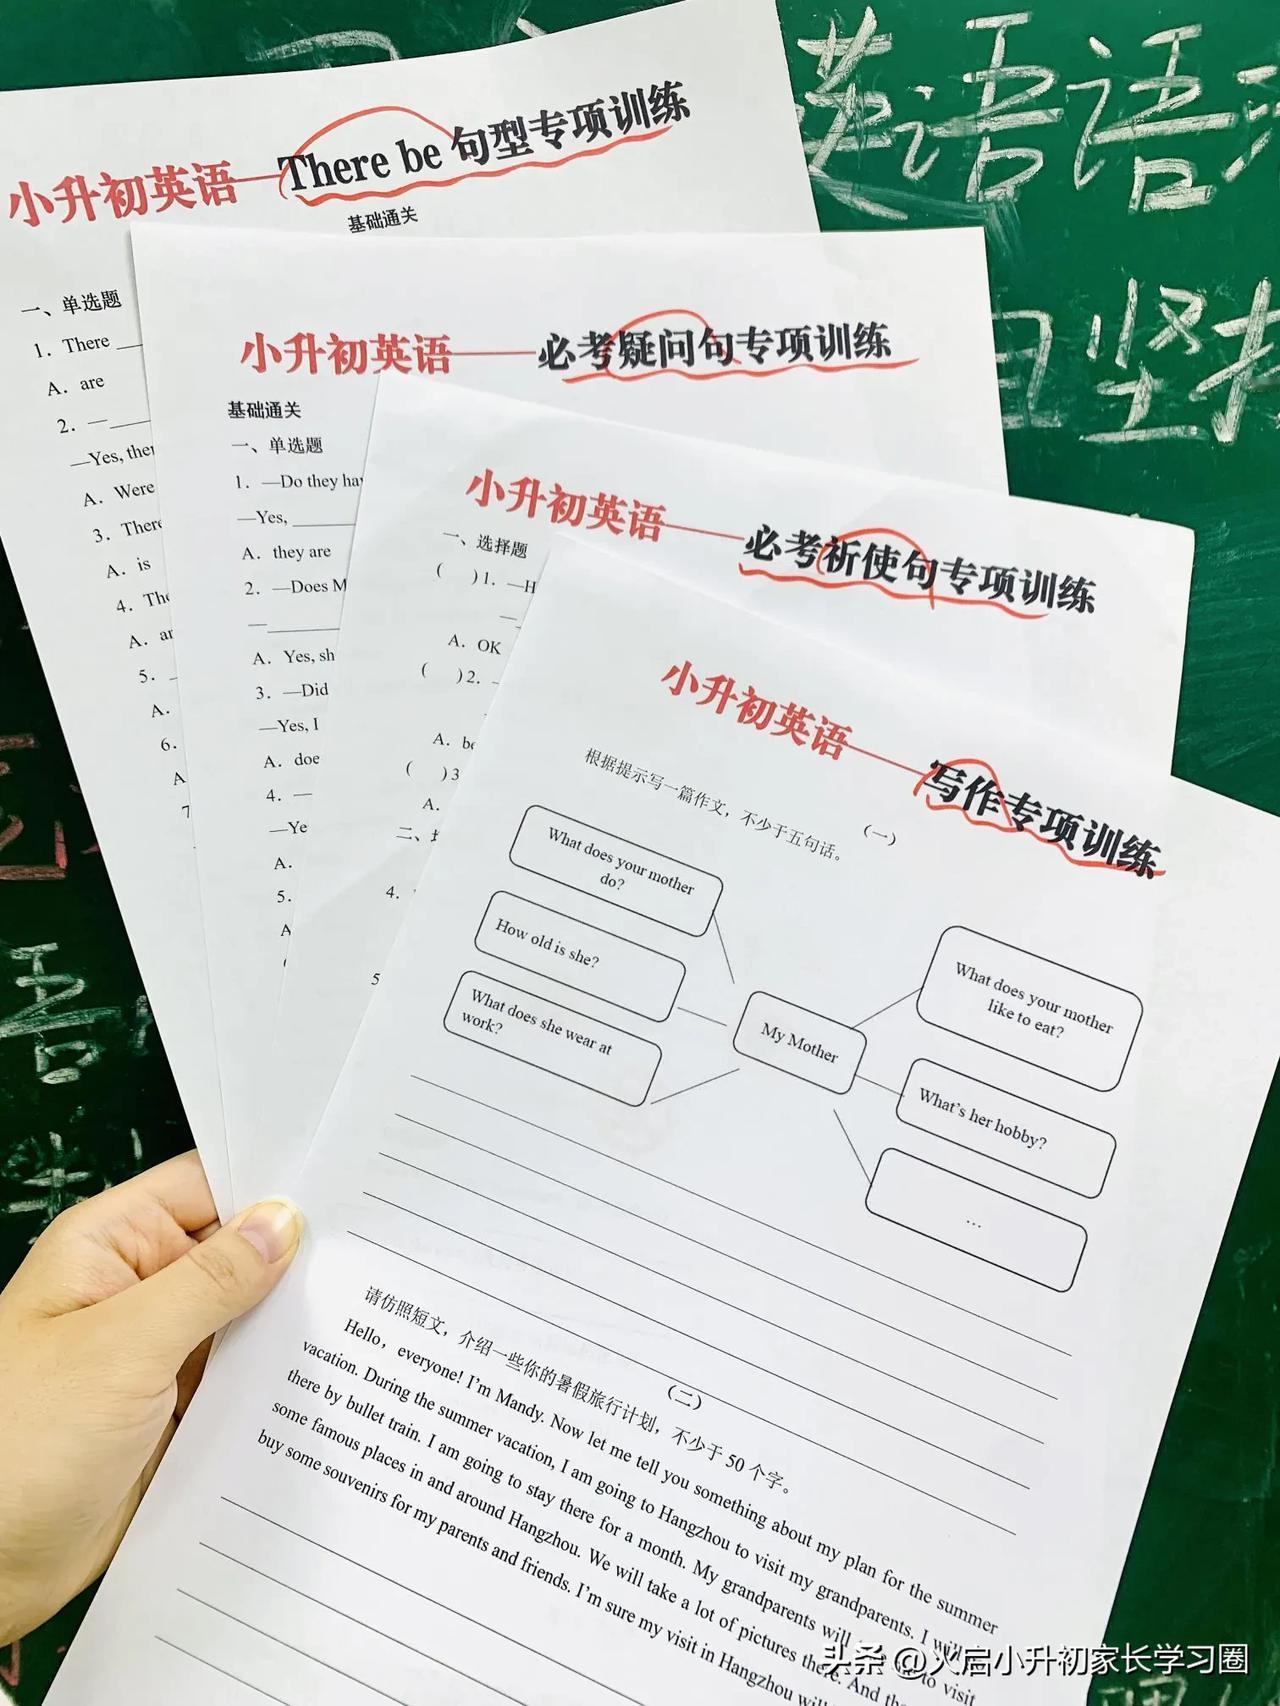 英语语
小升初英语——There be 句型专项训练
基础通关
一、单选题
1．There
A．are
2．—
—Yes, ther
A．Were
3．There
A．is
4．The
A．ar
5．
A．
6．
A
7
小升初英语——必考疑问句专项训练
基础通关
一、单选题
1．—Do they ha
—Yes,
A．they are
2．—Does M
—
A．Yes, sh
3．—Did
—Yes, I
A．doe
4．—
—Ye
A．
5．
A
小升初英语——必考祈使句专项训练
一、选择题
(　)1．—H
—
A．OK
(　)2．
A．be
(　)3
A．
二、
4．
5
小升初英语——写作专项训练
（一）
根据提示写一篇作文，不少于五句话。
What does your mother
do?
How old is she?
What does she wear at
work?
My Mother
What does your mother
like to eat?
What's her hobby?
…
（二）
请仿照短文，介绍一些你的暑假旅行计划，不少于 50 个字。
Hello, everyone! I'm Mandy. Now let me tell you something about my plan for the summer
vacation. During the summer vacation, I am going to Hangzhou to visit my grandparents. I will
there by bullet train. I am going to stay there for a month. My grandparents will to visit
some famous places in and around Hangzhou. We will take a lot of pictures there. And
buy some souvenirs for my parents and friends. I'm sure my visit in Hangzhou will
头条 @火启小升初家长学习圈